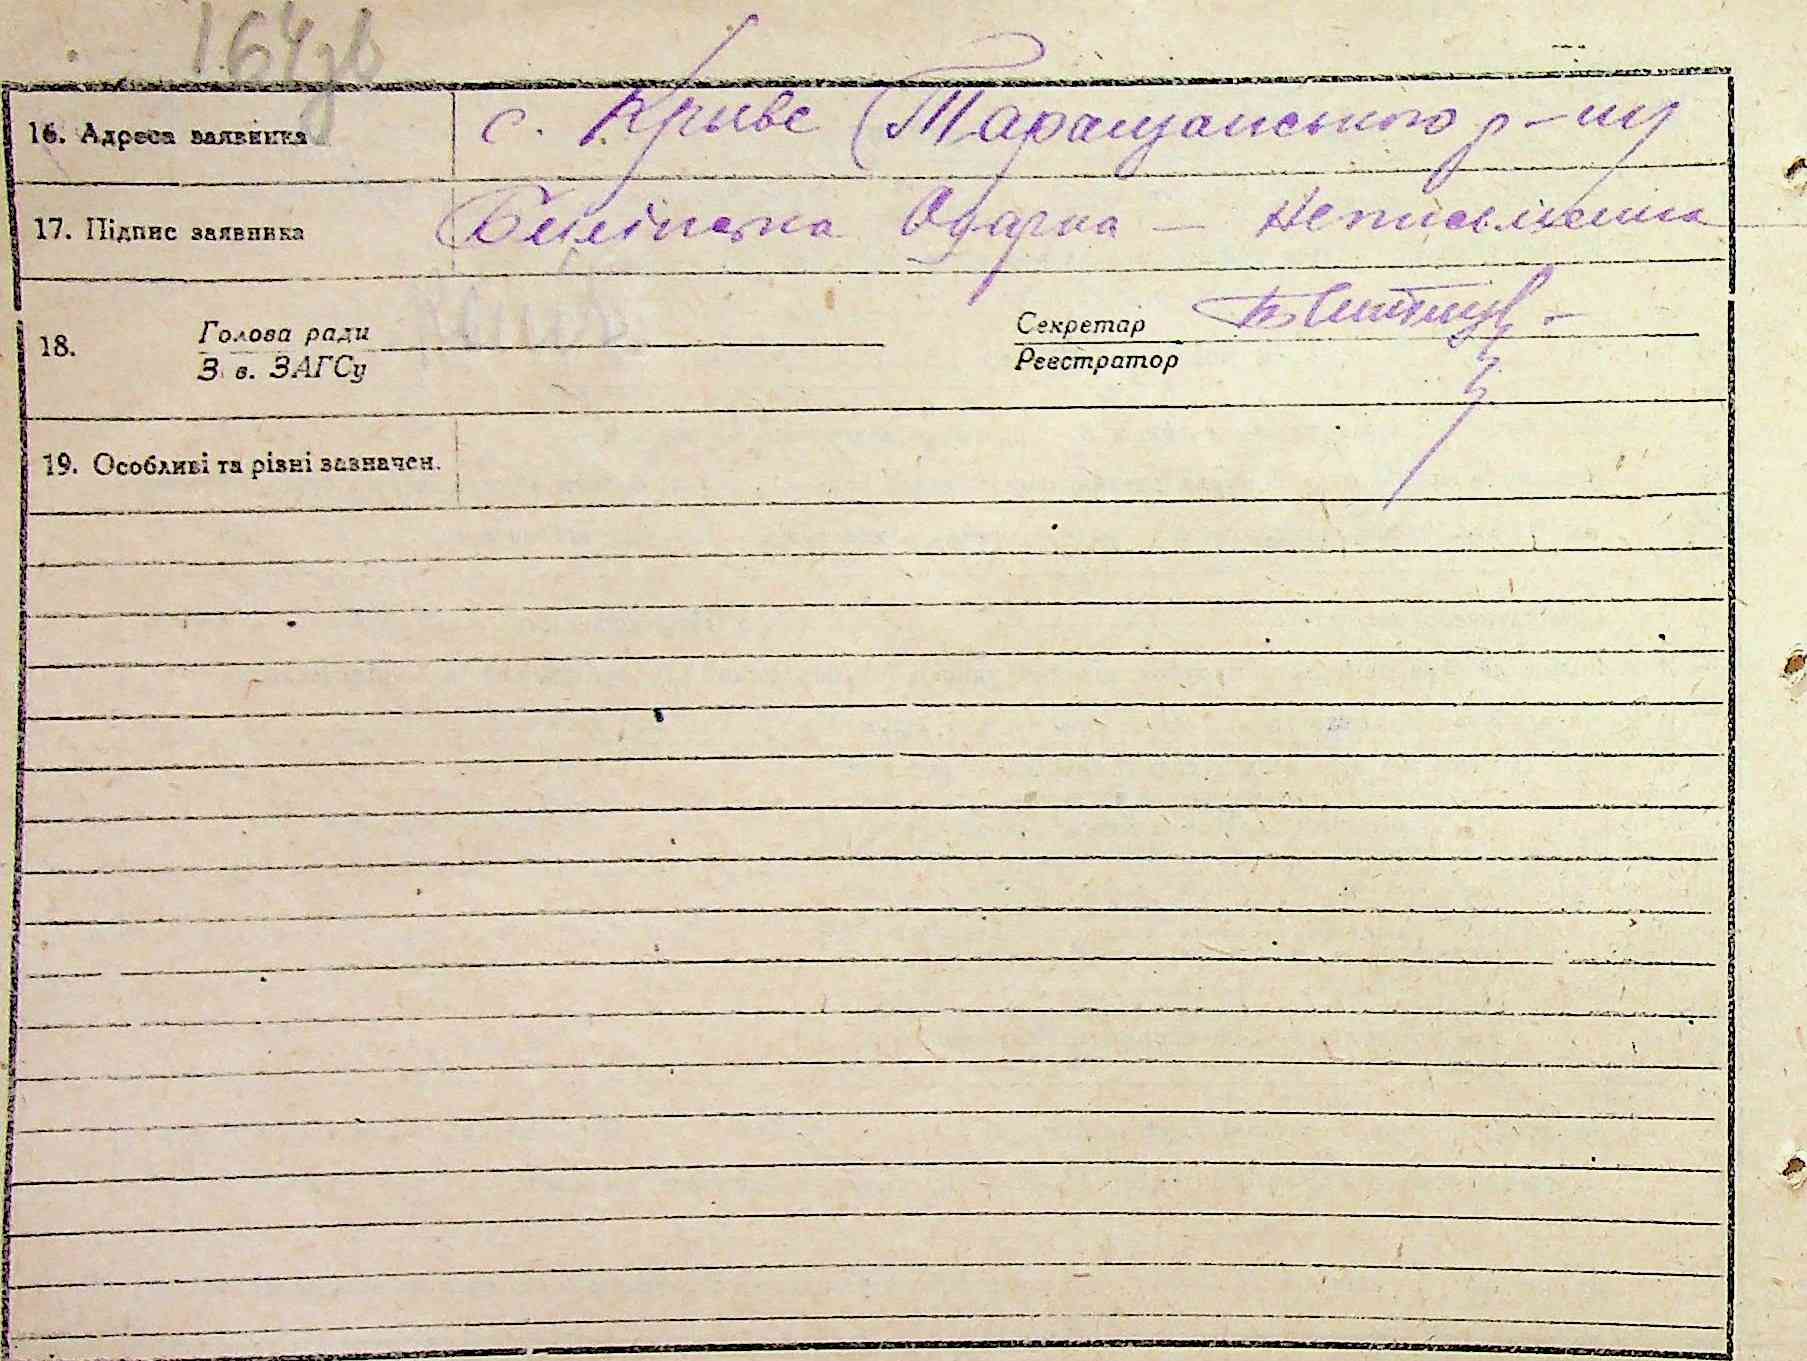 164зв
16. Адреса заявника с. Криве Таращанського р-ну
17. Підпис заявника Одарка — Неписьменна
18. Голова ради Секретар
Зав. ЗАГСу Реєстратор
19. Особливі та різні зазначен.